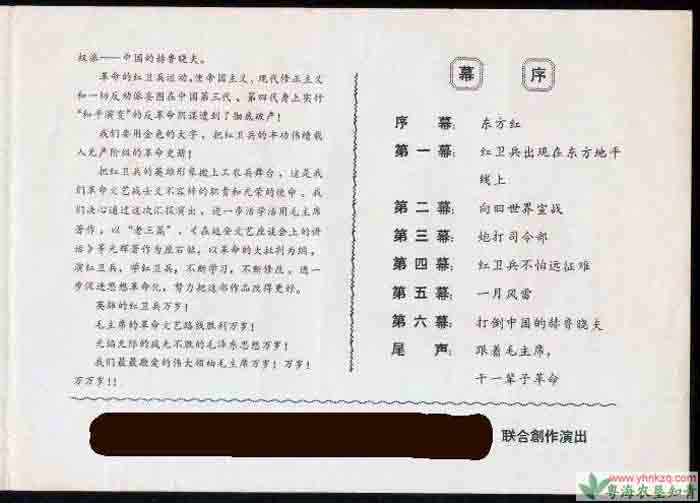 权派——中国的赫鲁晓夫。
革命的红卫兵运动,使帝国主义、现代修正主义
和一切反动派妄图在中国第三代、第四代身上实行
“和平演变”的反革命阴谋遭到了彻底破产!
我们要用金色的大字,把红卫兵的丰功伟绩载
入无产阶级的革命史册!
把红卫兵的英雄形象搬上工农兵舞台,这是我
们革命文艺战士义不容辞的职责和光荣的使命。我
们决心通过这次汇报演出,进一步活学活用毛主席
著作,以“老三篇”、《在延安文艺座谈会上的讲
话》等光辉著作为座右铭,以革命的大批判为纲,
演红卫兵,学红卫兵,不断学习,不断修改,进一
步促进思想革命化,努力把这部作品改得更好。
英雄的红卫兵万岁!
毛主席的革命文艺路线胜利万岁!
光焰无际的战无不胜的毛泽东思想万岁!
我们最最敬爱的伟大领袖毛主席万岁!万岁!
万万岁!!
幕 序
序 幕: 东方红
第一幕: 红卫兵出现在东方地平
线上
第二幕: 向旧世界宣战
第三幕: 炮打司令部
第四幕: 红卫兵不怕远征难
第五幕: 一月风雷
第六幕: 打倒中国的赫鲁晓夫
尾 声: 跟着毛主席,
干一辈子革命
联合創作演出
www.yhnkzq.com
粤海农垦知青